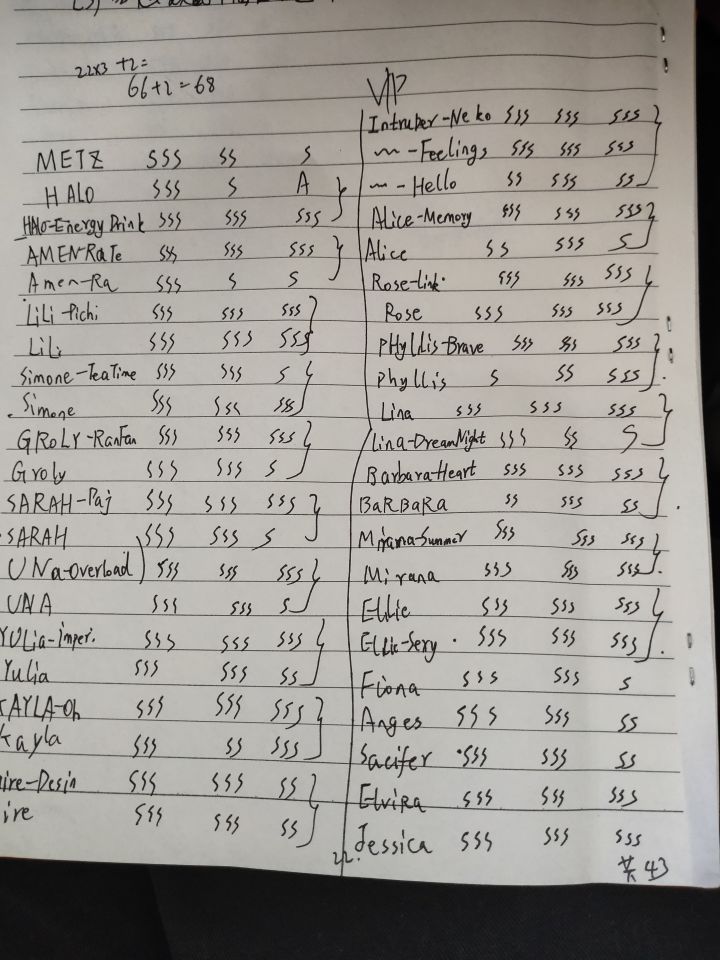 22x3 +2=
66+2=68
METZ SSS SS S
HALO SSS S A
HALO-Energy Drink SSS SSS SSS
AMEN-RaTe SS SSS SSS
Amen-Ra SSS S S
LiLi-Pichi SSS SSS SSS
LiLi SSS SSS SSS
Simone-TeaTime SSS SSS S
Simone SSS SSS SSS
GROLY-RanFan SSS SSS SSS
Groly SSS SSS S
SARAH-Paj SSS SSS SSS
SARAH SSS SSS S
UNa-Overload SSS SSS SSS
UNA SSS SSS S
YULia-imperi. SSS SSS SSS
Yulia SSS SSS SS
KAYLA-Oh SSS SSS SSS
Kayla SSS SS SSS
ire-Desin SSS SSS SS
ire SSS SSS SS
VIP
Intruder-Neko SSS SSS SSS
~-Feelings SSS SSS SSS
~-Hello SS SSS SS
Alice-Memory SSS SSS SSS
Alice SS SSS S
Rose-link SSS SSS SSS
Rose SSS SSS SSS
PHyllis-Brave SSS SSS SSS
Phyllis S SS SSS
Lina SSS SSS SSS
Lina-DreamNight SSS SS S
Barbara-Heart SSS SSS SSS
BaRBaRa SS SSS SS
Mirana-Summer SSS SSS SSS
Mirana SSS SSS SSS
ELLie SSS SSS SSS
ELLie-Sexy SSS SSS SSS
Fiona SSS SSS S
Anges SSS SSS SS
Sacifer SSS SSS SS
Elvira SSS SSS SSS
22. Jessica SSS SSS SSS
共43